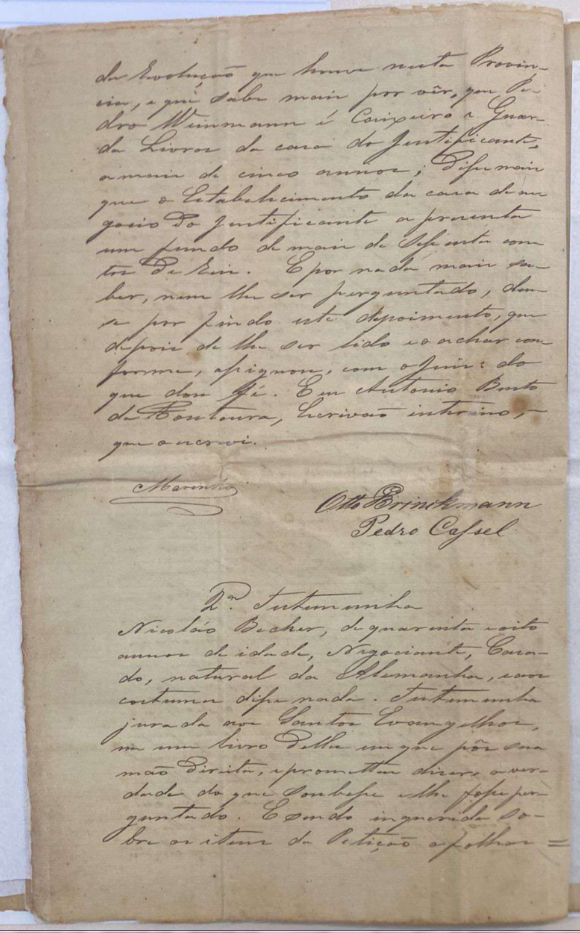 da Revolução que houve nesta Provin-
cia, e que sabe mais por vêr, que Pe-
dro Weinmann é Caixeiro e Guar-
da Livros da casa do Justificante,
a mais de cinco annos; disse mais
que o Estabelecimento da casa de ne-
gocio do Justificante apresenta
um fundo de mais de sessenta con-
tos de Reis. E por nada mais sa-
ber, nem lhe ser perguntado, deu-
se por findo este depoimento, que
depois de lhe ser lido e o achar con
forme, assignou, com o Juiz: do
que dou fé. Eu Antonio Bento
da Fontoura, Escrivão interino,
que o escrevi.
Marinho
Otto Brinckmann
Pedro Cassel
2ª Testemunha
Nicoláo Becker, de quarenta e oito
annos de idade, Negociante, Casa-
do, natural da Alemanha, e aos
costumes disse nada. Testemunha
jurada aos Santos Evangelhos,
em um livro delles em que pôs sua
mão direita, e prometteu dizer a ver-
dade do que soubesse e lhe fosse per-
guntado. E sendo inquerida so-
bre os itens da Petição a folhas =